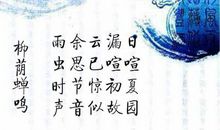 柳荫蝉鸣
雨余云漏日
虫思已喧喧
时节惊初夏
声音似故园